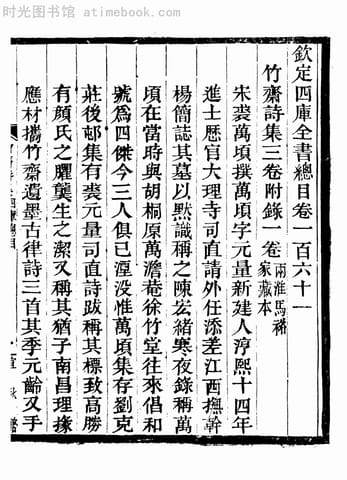 时光图书馆 atimebook.com
欽定四庫全書總目卷一百六十一
竹齋詩集三卷附錄一卷 兩淮馬裕家藏本
宋裘萬頃撰萬頃字元量新建人淳熙十四年
進士歷官大理寺司直請外任添差江西撫幹
楊簡誌其墓以默識稱之陳宏緒寒夜錄稱萬
頃在當時與胡桐原萬澹菴徐竹堂往來倡和
號爲四傑今三人俱已湮没惟萬頃集存劉克
莊後邨集有裘元量司直詩跋稱其標致高勝
有顔氏之臞龔生之潔又稱其猶子南昌理掾
應材攜竹齋遺墨古律詩三首其季元齡又手